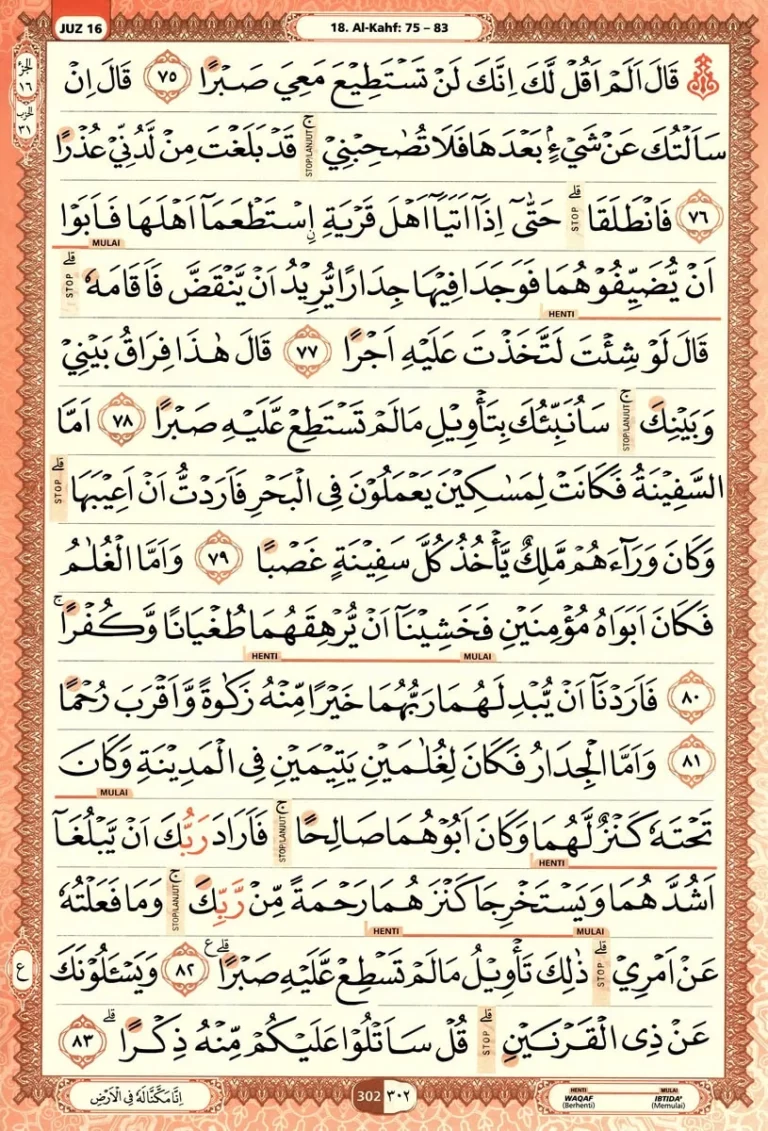 JUZ 16
18. Al-Kahf: 75 – 83
الجزء ١٦
الحزب ٣١
قَالَ اَلَمْ اَقُلْ لَّكَ اِنَّكَ لَنْ تَسْتَطِيْعَ مَعِيَ صَبْرًا ٧٥ قَالَ اِنْ
سَاَلْتُكَ عَنْ شَيْءٍۢ بَعْدَهَا فَلَا تُصٰحِبْنِيْ ۚ قَدْ بَلَغْتَ مِنْ لَّدُنِّيْ عُذْرًا
STOP|LANJUT
٧٦ فَانْطَلَقَا ۗ حَتّٰىٓ اِذَآ اَتَيَآ اَهْلَ قَرْيَةِ ِۨاسْتَطْعَمَآ اَهْلَهَا فَاَبَوْا
STOP
MULAI
اَنْ يُّضَيِّفُوْهُمَا فَوَجَدَا فِيْهَا جِدَارًا يُّرِيْدُ اَنْ يَّنْقَضَّ فَاَقَامَهٗ ۗ
STOP
HENTI
قَالَ لَوْ شِئْتَ لَتَّخَذْتَ عَلَيْهِ اَجْرًا ٧٧ قَالَ هٰذَا فِرَاقُ بَيْنِيْ
وَبَيْنِكَ ۚ سَاُنَبِّئُكَ بِتَأْوِيْلِ مَا لَمْ تَسْتَطِعْ عَّلَيْهِ صَبْرًا ٧٨ اَمَّا
STOP|LANJUT
السَّفِيْنَةُ فَكَانَتْ لِمَسٰكِيْنَ يَعْمَلُوْنَ فِى الْبَحْرِ فَاَرَدْتُّ اَنْ اَعِيْبَهَا ۗ
STOP
وَكَانَ وَرَاۤءَهُمْ مَّلِكٌ يَّأْخُذُ كُلَّ سَفِيْنَةٍ غَصْبًا ٧٩ وَاَمَّا الْغُلٰمُ
فَكَانَ اَبَوَاهُ مُؤْمِنَيْنِ فَخَشِيْنَآ اَنْ يُّرْهِقَهُمَا طُغْيَانًا وَّكُفْرًا ۚ
HENTI
MULAI
٨٠ فَاَرَدْنَآ اَنْ يُّبْدِلَهُمَا رَبُّهُمَا خَيْرًا مِّنْهُ زَكٰوةً وَّاَقْرَبَ رُحْمًا
٨١ وَاَمَّا الْجِدَارُ فَكَانَ لِغُلٰمَيْنِ يَتِيْمَيْنِ فِى الْمَدِيْنَةِ وَكَانَ
MULAI
تَحْتَهٗ كَنْزٌ لَّهُمَا وَكَانَ اَبُوْهُمَا صَالِحًا ۚ فَاَرَادَ رَبُّكَ اَنْ يَّبْلُغَآ
STOP|LANJUT
HENTI
اَشُدَّهُمَا وَيَسْتَخْرِجَا كَنْزَهُمَا رَحْمَةً مِّنْ رَّبِّكَ ۚ وَمَا فَعَلْتُهٗ
STOP|LANJUT
HENTI
MULAI
ع
عَنْ اَمْرِيْ ۗ ذٰلِكَ تَأْوِيْلُ مَا لَمْ تَسْطِعْ عَّلَيْهِ صَبْرًا ۗ ع ٨٢ وَيَسْـَٔلُوْنَكَ
STOP
عَنْ ذِى الْقَرْنَيْنِ ۗ قُلْ سَاَتْلُوْا عَلَيْكُمْ مِّنْهُ ذِكْرًا ۗ ٨٣
STOP
اِنَّا مَكَّنَّا لَهٗ فِى الْاَرْضِ
302 ٣٠٢
HENTI
WAQAF
(Berhenti)
MULAI
IBTIDA'
(Memulai)